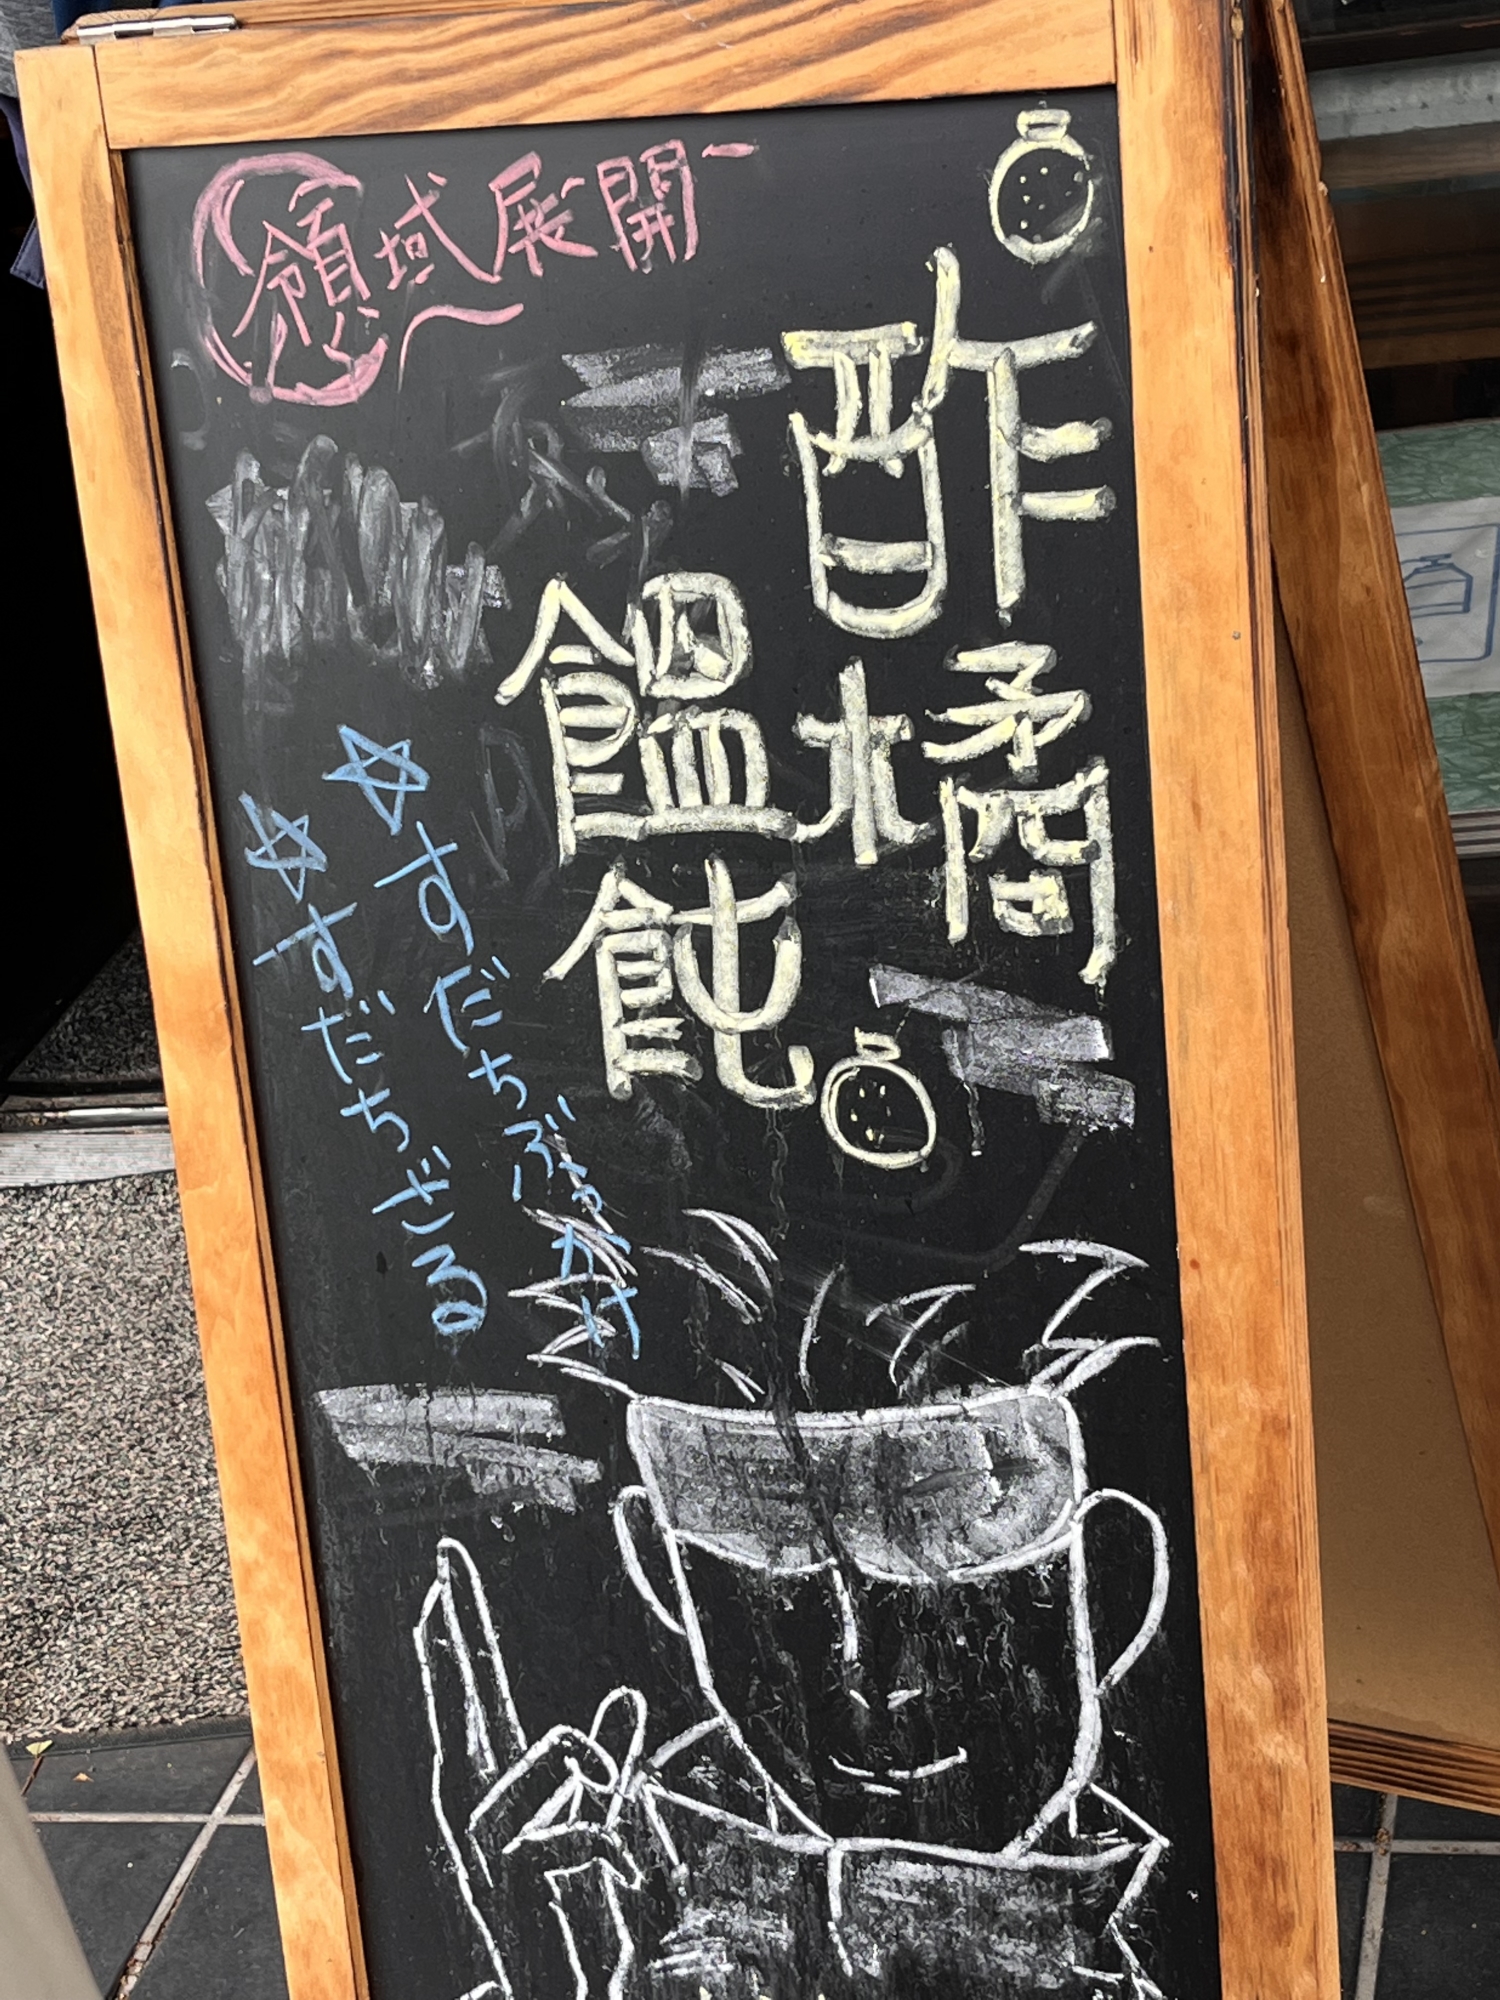 領域展開ー
酢橘
饂飩
☆すだちぶっかけ
☆すだちざる